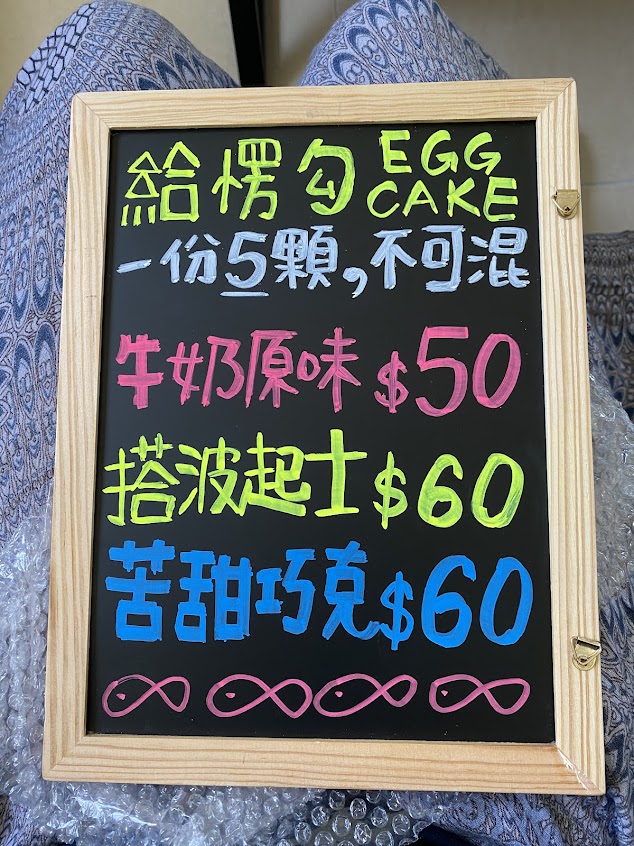 給愣勾 EGG CAKE
一份5顆,不可混
牛奶原味 $50
搭波起士 $60
苦甜巧克 $60